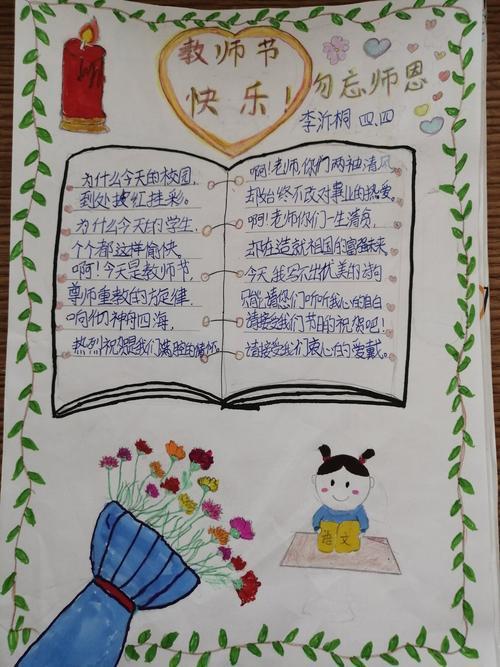 教师节
快乐！
勿忘师恩
李沂桐 四.四
为什么今天的校园,
到处披红挂彩。
为什么今天的学生,
个个都这样愉快
啊!今天是教师节,
尊师重教的旋律
响彻神州四海,
热烈祝福跟我们满腔的情怀.
啊!老师你们两袖清风
却始终不改对事业的热爱。
啊!老师你们一生清贫,
却在造就祖国的富强未来
今天我写不出优美的诗句
只能请您们听听我心的自白
请接受我们节日的祝贺吧!
请接受我们衷心的爱戴。
语文